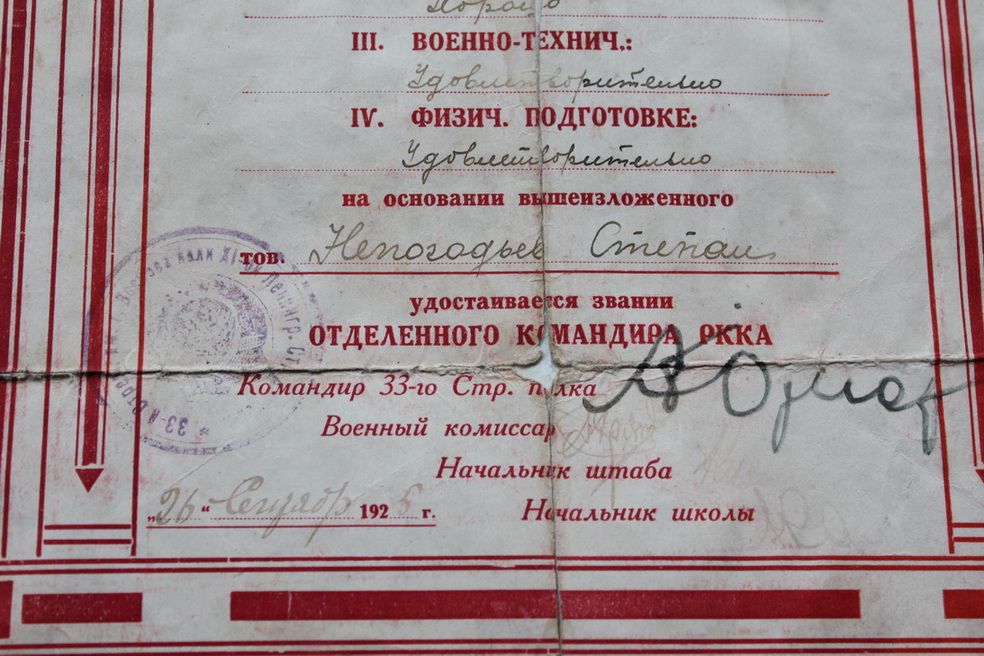 Хорошо
III. ВОЕННО-ТЕХНИЧ.:
Удовлетворительно
IV. ФИЗИЧ. ПОДГОТОВКЕ:
Удовлетворительно
на основании вышеизложенного
тов. Непогодьев Степан
удостаивается звания
ОТДЕЛЕННОГО КОМАНДИРА РККА
Командир 33-го Стр. полка
Военный комиссар
Начальник штаба
„26“ Сентябр 1925 г.
Начальник школы